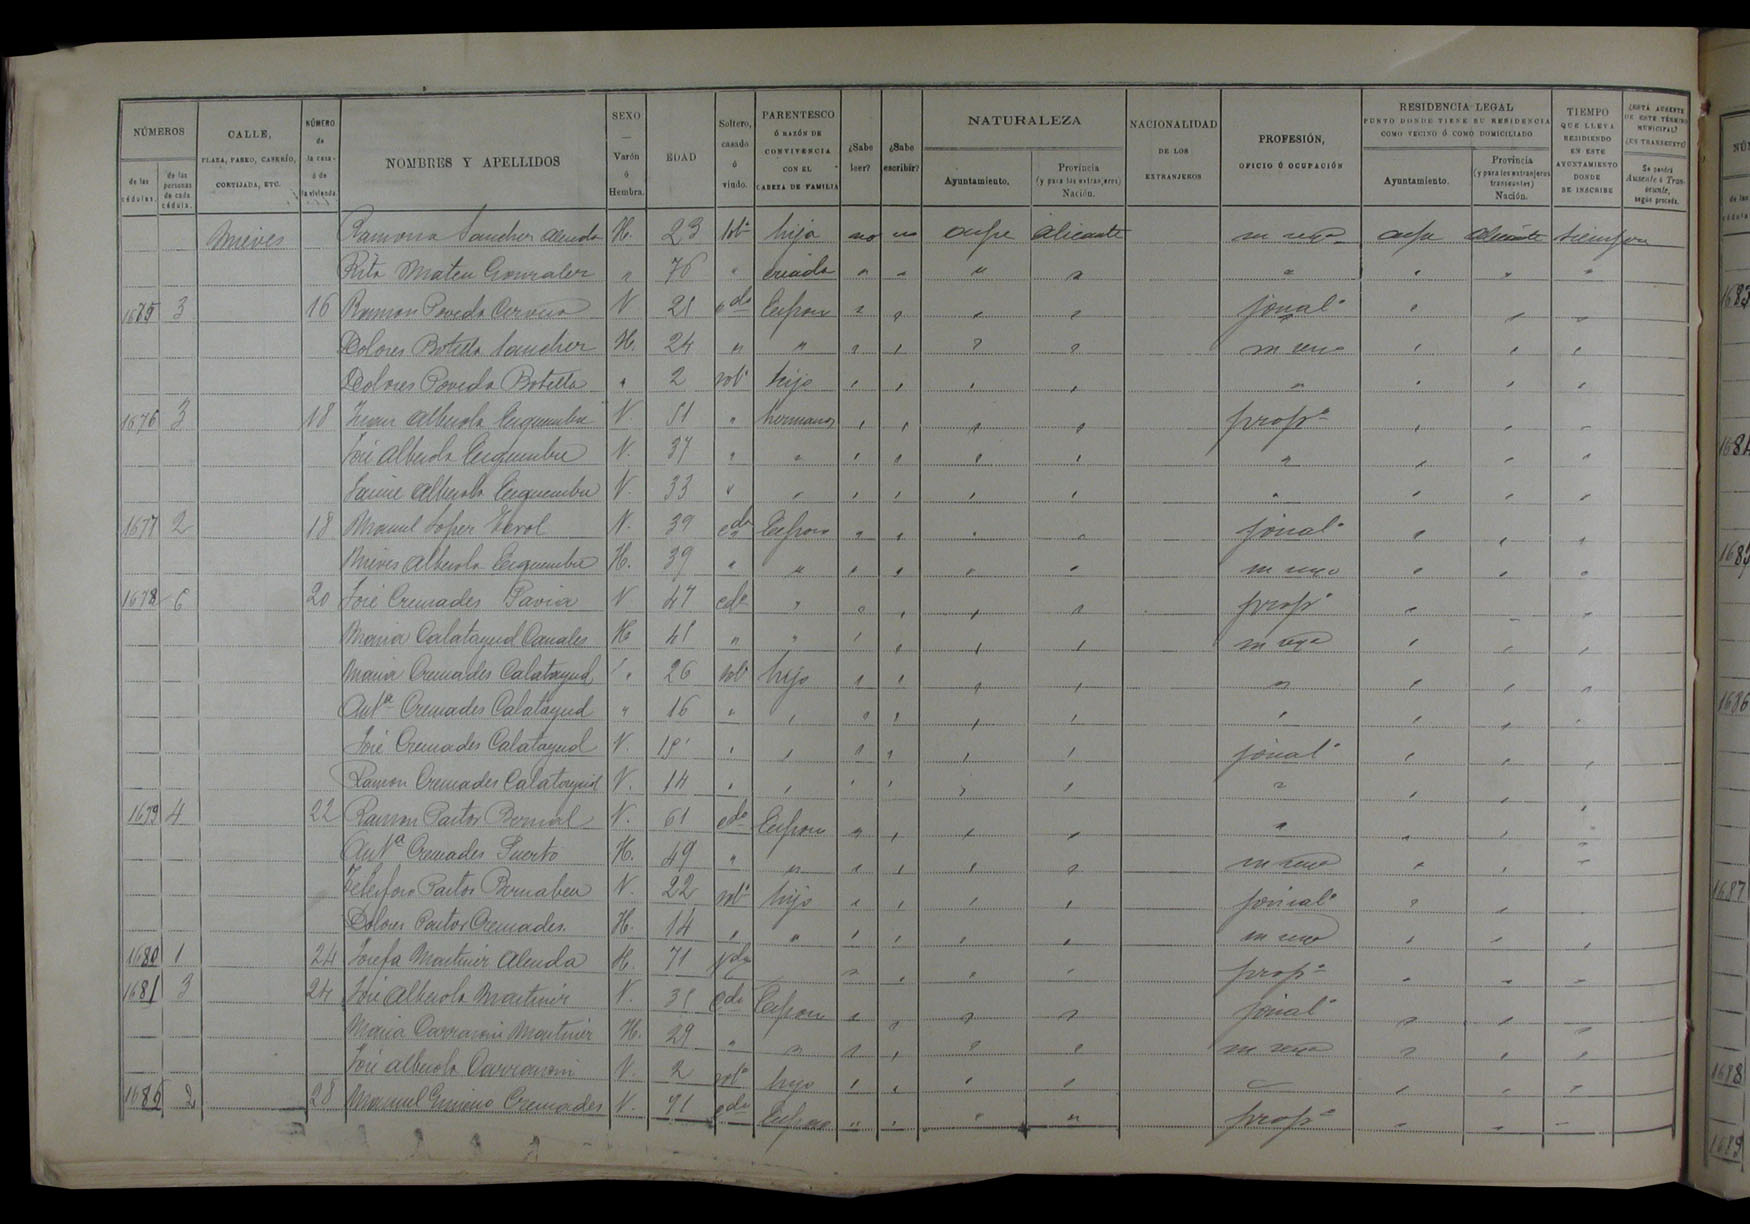 NÚMEROS
de las cédulas.
de las personas de cada cédula.
CALLE, PLAZA, PASEO, CASERÍO, CORTIJADA, ETC.
NÚMERO de la casa ó de la vivienda
NOMBRES Y APELLIDOS
SEXO — Varón ó Hembra.
EDAD
Soltero, casado ó viudo.
PARENTESCO Ó RAZÓN DE CONVIVENCIA CON EL CABEZA DE FAMILIA
¿Sabe leer?
¿Sabe escribir?
NATURALEZA
Ayuntamiento.
Provincia (y para los extranjeros) Nación.
NACIONALIDAD DE LOS EXTRANJEROS
PROFESIÓN, OFICIO Ó OCUPACIÓN
RESIDENCIA LEGAL
PUNTO DONDE TIENE SU RESIDENCIA COMO VECINO Ó COMO DOMICILIADO
Ayuntamiento.
Provincia (y para los extranjeros transeuntes) Nación.
TIEMPO QUE LLEVA RESIDIENDO EN ESTE AYUNTAMIENTO DONDE SE INSCRIBE
¿ESTÁ AUSENTE DE ESTE TÉRMINO MUNICIPAL?
¿ES TRANSEUNTE?
Se pondrá Ausente ó Transeunte, según proceda.
Nieves Ramona Sanchez Alenda H. 23 solt hija no no Aspe Alicante Aspe Alicante siempre
Rita Mateu Gonzalez " 76 " criada " " " " " " " "
3 16 Ramon Poveda Cerveró V 21 cdo Esposo " " " " jornal " " "
Dolores Botella Sanchez H. 24 " " " " " " " " "
Dolores Poveda Botella " 2 solt hijo " " " " " " " "
1676 3 18 Juan Alberola Esquembre V 51 " hermanos " " " " prop " " "
José Alberola Esquembre V. 37 " " " " " " " " " "
Jaime Alberola Esquembre V. 33 " " " " " " " " " "
1677 2 18 Manuel Lopez V. 39 cdo Esposo " " " " jornal " " "
Nieves Alberola Esquembre H. 39 " " " " " " " " "
1678 6 20 José Cremades Pavia V 47 cdo " " " " " prop " " "
Maria Calatayud Canales H 41 " " " " " " " " "
Maria Cremades Calatayud " 26 solt hijo " " " " " " " "
Antª Cremades Calatayud " 16 " " " " " " " " " "
José Cremades Calatayud V. 15 " " " " " " jornal " " "
Ramon Cremades Calatayud V. 14 " " " " " " " " " "
1679 4 22 Ramon Pastor Bernal V. 61 cdo Esposo " " " " " " " "
Antª Cremades Puerto H. 49 " " " " " " " " "
Telesforo Pastor Bernabeu V. 22 solt hijo " " " " jornal " "
Dolores Pastor Cremades H. 14 " " " " " " " " "
1680 1 24 Josefa Martinez Alenda H. 71 Vda " " " " prop " " "
1681 3 24 José Alberola Martinez V. 31 Cdo Esposo " " " " jornal " " "
Maria Carrasco Martinez H. 29 " " " " " " " " "
José Alberola V. 2 solt hijo " " " " " " "
2 28 Manuel Cremades V. 71 cdo Esposo " " " " prop " " "
1686
1687
1688
1689